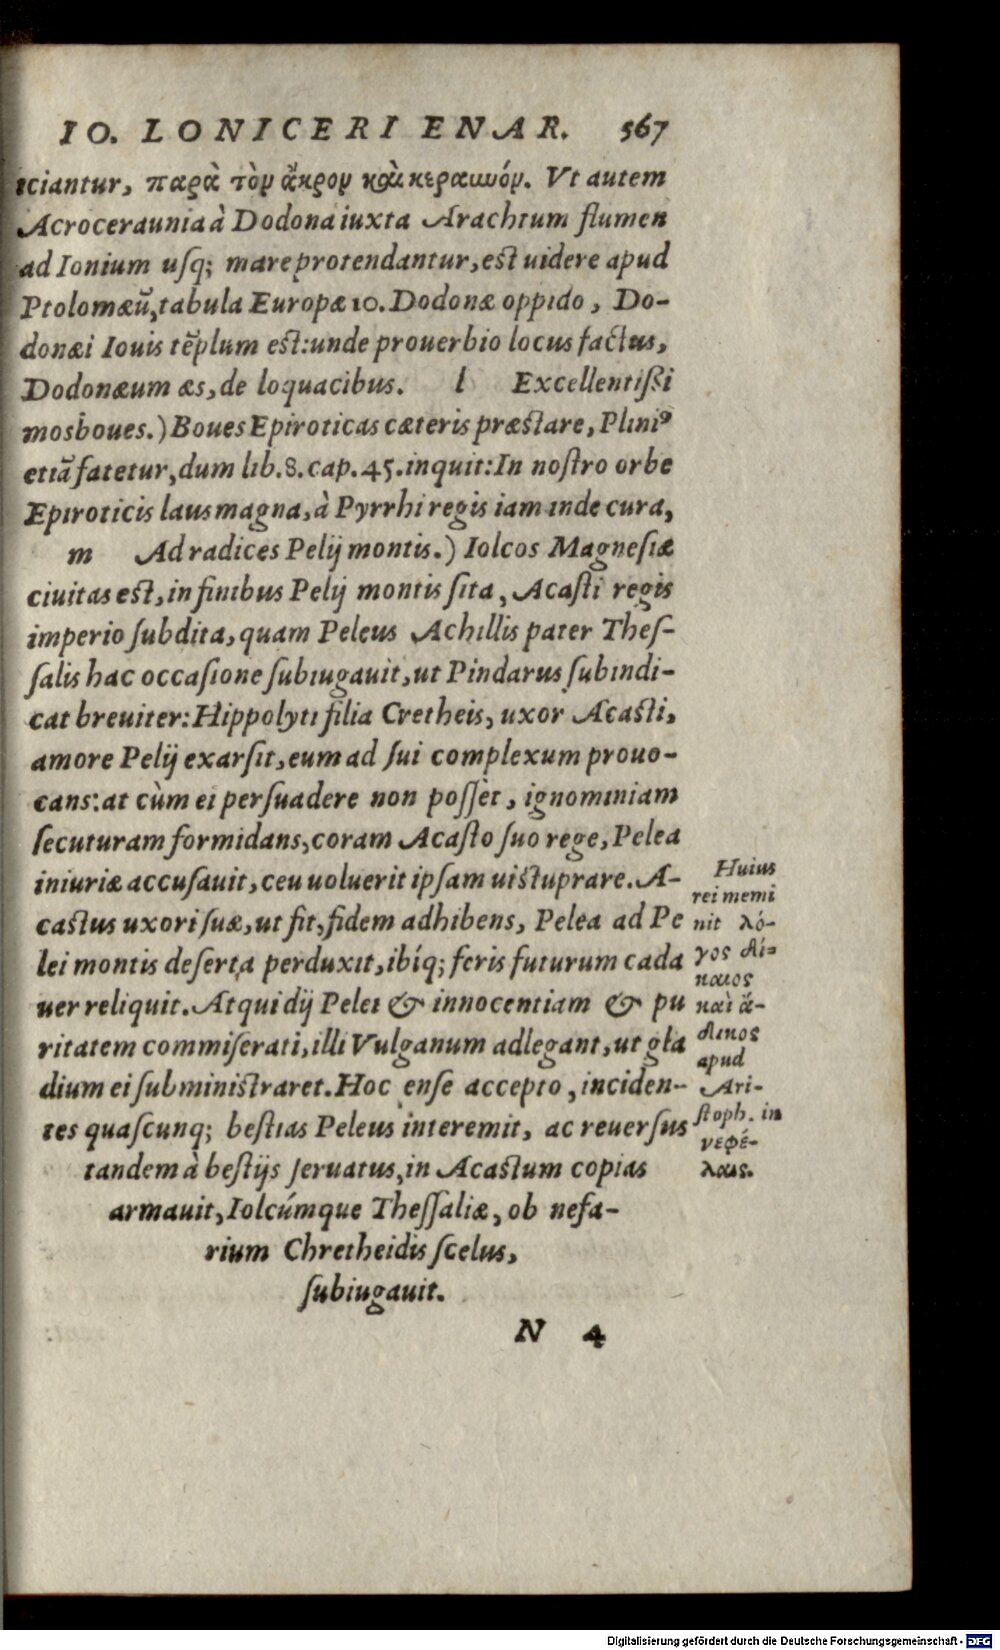 IO. LONICERI ENAR. 567
iciantur, παρὰ τὸν ἄκρον καὶ κεραυνόν. Vt autem
Acroceraunia à Dodona iuxta Arachtum flumen
ad Ionium uſq; mare protendantur, est uidere apud
Ptolomæū, tabula Europæ 10. Dodonæ oppido, Do-
donæi Iouis tēplum est: unde prouerbio locus factus,
Dodonæum æs, de loquacibus. l Excellentiſsi
mosboues.) Boues Epiroticas cæteris præstare, Pliniꝰ
etiā fatetur, dum lib. 8. cap. 45. inquit: In noſtro orbe
Epiroticis laus magna, à Pyrrhi regis iam inde cura,
m Ad radices Pelij montis.) Iolcos Magneſiæ
ciuitas est, in finibus Pelij montis ſita, Acaſti regis
imperio ſubdita, quam Peleus Achillis pater Theſ-
ſalis hac occaſione ſubiugauit, ut Pindarus ſubindi-
cat breuiter: Hippolyti filia Cretheis, uxor Acaſti,
amore Pelij exarſit, eum ad ſui complexum prouo-
cans: at cùm ei perſuadere non poſſet, ignominiam
ſecuturam formidans, coram Acaſto ſuo rege, Pelea
iniuriæ accuſauit, ceu uoluerit ipſam ui stuprare. A-
castus uxori ſuæ, ut fit, fidem adhibens, Pelea ad Pe
lei montis deſerta perduxit, ibíq; feris futurum cada
uer reliquit. Atqui dij Pelei & innocentiam & pu
ritatem commiſerati, illi Vulganum adlegant, ut gla
dium ei ſubministraret. Hoc enſe accepto, inciden-
tes quaſcunq; beſtias Peleus interemit, ac reuerſus
tandem à beſtijs ſeruatus, in Acastum copias
armauit, Iolcúmque Theſſaliæ, ob nefa-
rium Chretheidis ſcelus,
ſubiugauit.
N 4
Huius
rei memi
nit λό-
γος δί-
καιος
καὶ ἄ-
δικος
apud
Ari-
ſtoph. in
νεφέ-
λαις.
Digitalisierung gefördert durch die Deutsche Forschungsgemeinschaft - DFG